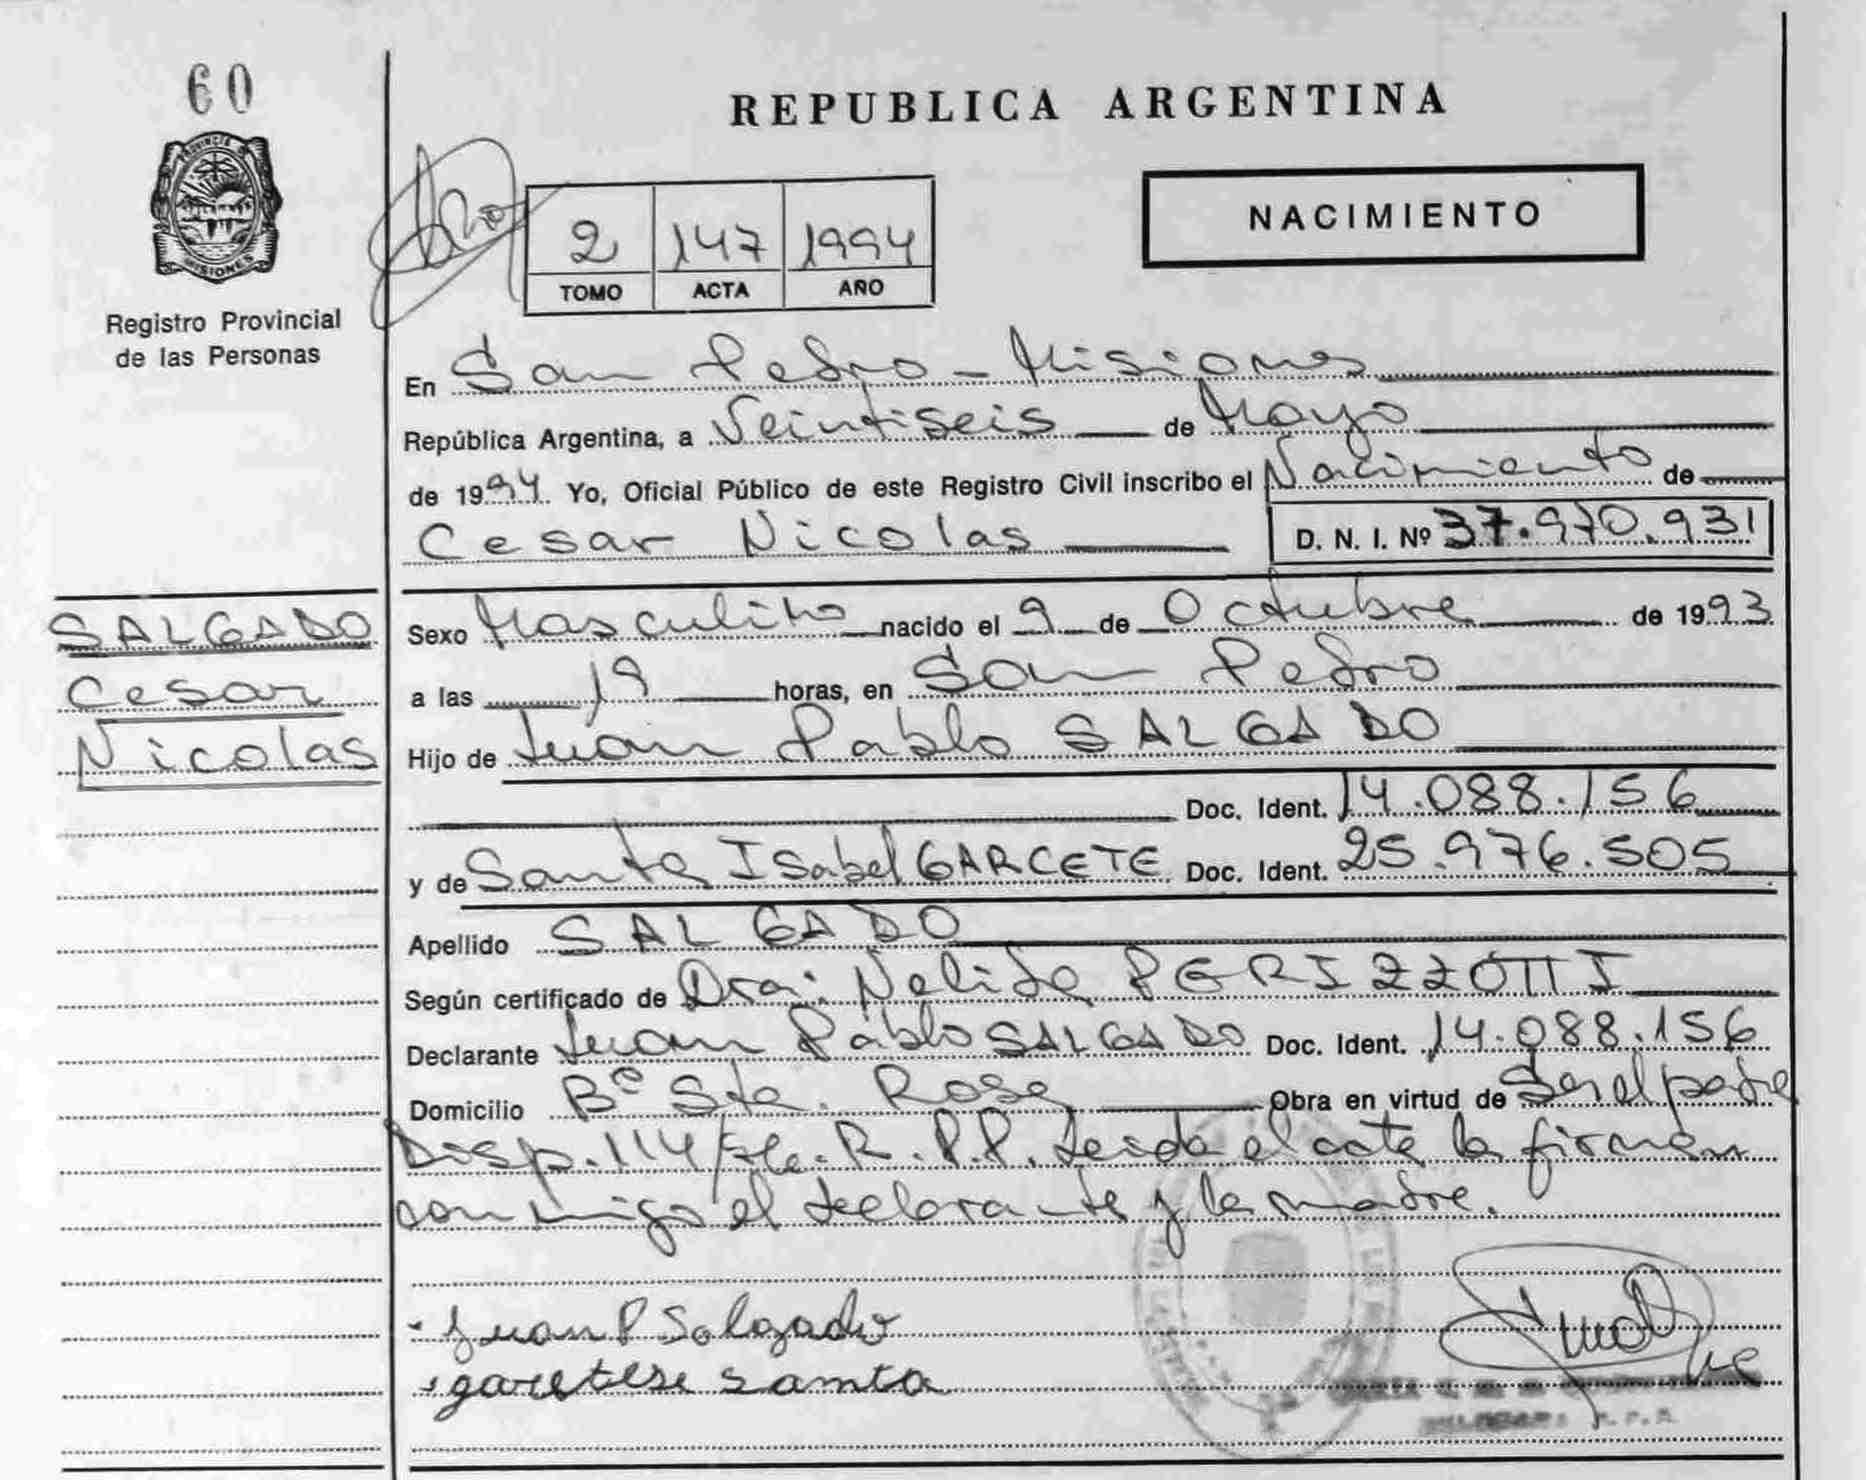 60
PROVINCIA DE
MISIONES
Registro Provincial
de las Personas
REPUBLICA ARGENTINA
NACIMIENTO
2 147 1994
TOMO ACTA AÑO
En San Pedro - Misiones
República Argentina, a Veintiseis de Mayo
de 1994 Yo, Oficial Público de este Registro Civil inscribo el Nacimiento de
Cesar Nicolas D. N. I. Nº 37.970.931
SALGADO
Cesar
Nicolas
Sexo Masculino nacido el 9 de Octubre de 1993
a las 19 horas, en San Pedro
Hijo de Juan Pablo SALGADO
Doc. Ident. 14.088.156
y de Santa Isabel GARCETE Doc. Ident. 25.976.505
Apellido SALGADO
Según certificado de Dra: Nelida PERIZZOTTI
Declarante Juan Pablo SALGADO Doc. Ident. 14.088.156
Domicilio Bº Sta. Rosa Obra en virtud de Ser el padre
Disp. 114/ R.P.P. Leida el acta la firman
conmigo el declarante y la madre.
Juan P Salgado
garetese santa